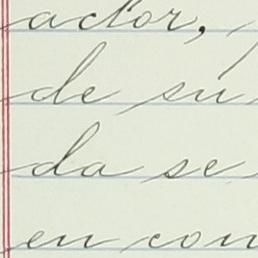 actor,
de su
da se
en con